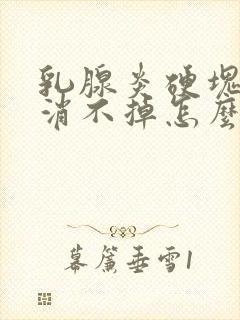 乳腺炎硬块
消不掉怎麼
幕簾垂雪1